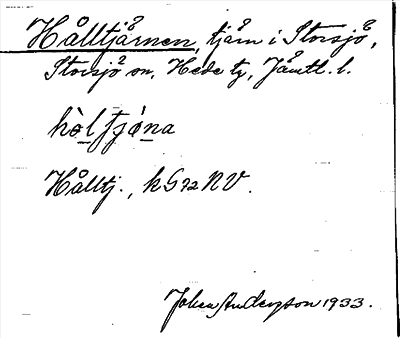 Hålltjårnen, tjårn i Storsjö,
Storsjö sn, Hede tg, Jåmtl. l.
hòltjòna
Hålltj., k G 72 NV.
Johan Anderson 1933.